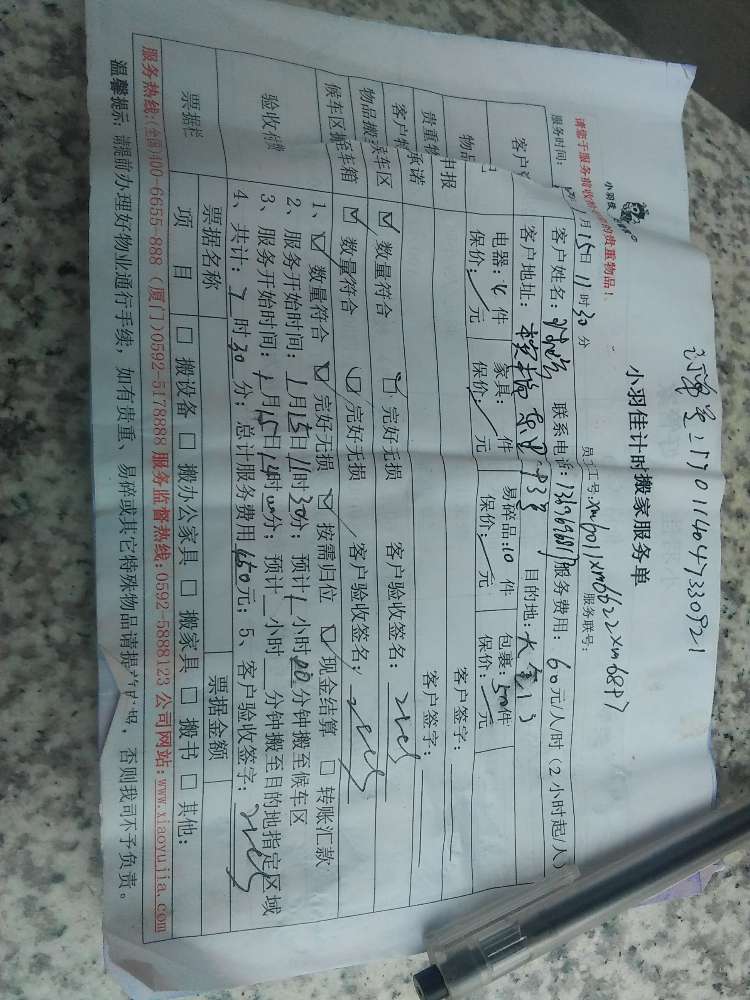 订单号:170114047330921
小羽佳计时搬家服务单
小羽佳
请您于服务前收好您的贵重物品!
员工号:xm6011xm6622xm6897 服务联号:
服务时间: 月15日11时30分
客户姓名: 联系电话: 服务费用:60元/人时(2小时起/人)
客户地址: 目的地:大金门
电器:4件 家具: 件 易碎品:10件 包裹:50件
保价: 元 保价: 元 保价: 元 保价: 元
贵重物 申报 客户签字:
客户 承诺 客户签字:
物品搬 车区 ☑ 数量符合 ☑ 完好无损 客户验收签名:
候车区搬至车箱 ☑ 数量符合 ☑ 完好无损 客户验收签名:
验收 1、☑ 数量符合 ☑ 完好无损 ☑ 按需归位 ☑ 现金结算 □ 转账汇款
2、服务开始时间:1月15日11时30分;预计1小时00分钟搬至候车区
3、服务开始时间:1月15日14时00分;预计 小时 分钟搬至目的地指定区域
4、共计:7时30分;总计服务费用650元;5、客户验收签字:
票据 票据名称 票据金额
项目 □ 搬设备 □ 搬办公家具 □ 搬家具 □ 搬书 □ 其他:
服务热线:(全国)400-6655-888(厦门)0592-5178888 服务监督热线:0592-5888123 公司网站:www.xiaoyujia.com
温馨提示:请提前办理好物业通行手续,如有贵重、易碎或其它特殊物品请提前 ,否则我司不予负责。